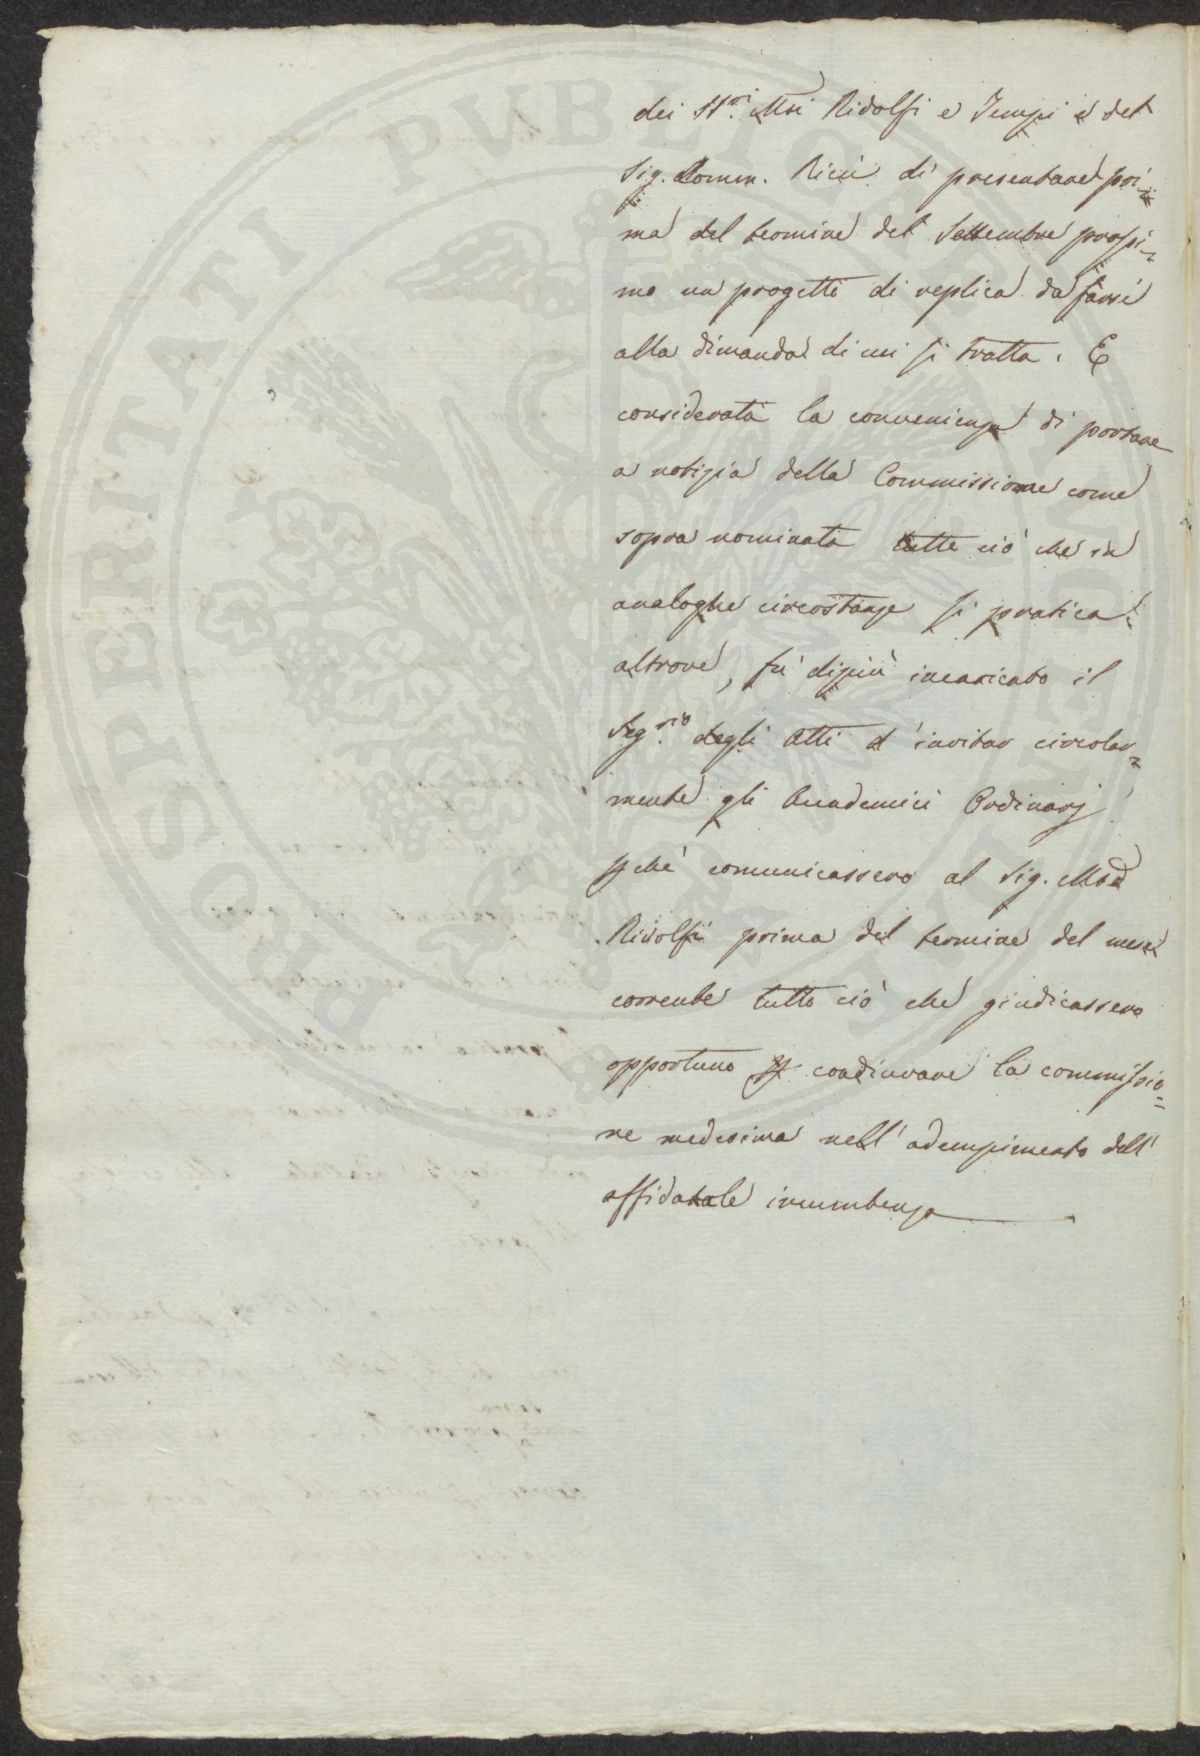 PROSPERITATI PUBLICAE AUGENDAE
dei SS.ri Msi Ridolfi e Tempi e del
Sig. Comm. Ricci di presentare pri=
ma del termine del Settembre prossi=
mo un progetto di replica da farsi
alla dimanda di cui si tratta. E
considerata la convenienza di portare
a notizia della Commissione come
sopra nominata tutto ciò che in
analoghe circostanze si pratica
altrove, fu dipiù incaricato il
Seg.rio degli Atti d'invitar circolar=
mente gli Accademici Ordinarj
pchè comunicassero al Sig. Mse
Ridolfi prima del termine del mese
corrente tutto ciò che giudicassero
opportuno p coadiuvare la commissio=
ne medesima nell'adempimento dell'
affidatale incumbenza